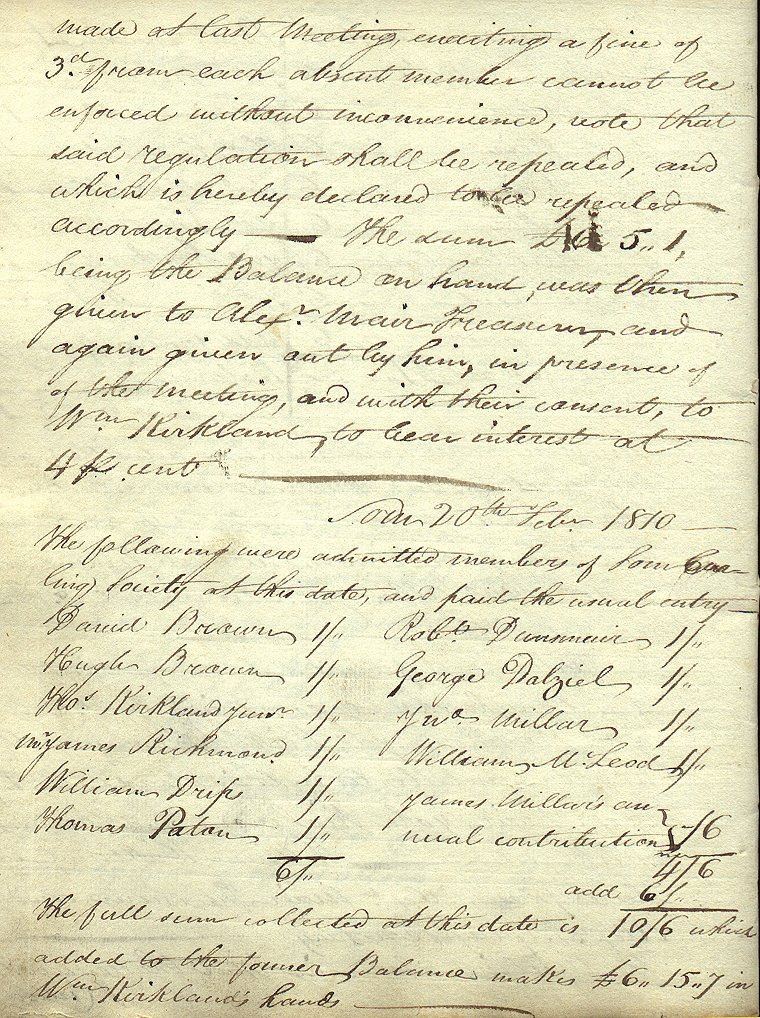 made at last Meeting, enacting a fine of
3.d from each absent member cannot be
enforced without inconvenience, vote that
said regulation shall be repealed, and
which is hereby declared to be repealed
accordingly — The sum £ 5,, 1,
being the Balance on hand, was then
given to Alexr. Mair Treasurer, and
again given out by him, in presence of
of the meeting, and with their consent, to
Wm Kirkland, to bear interest at
4 pr cent —
Sorn 20th Febr. 1810 —
The following were admitted members of Sorn Cur-
ling Society at this date, and paid the usual entry—
David Brown 1/,, Robt. Dunsmuir 1/,,
Hugh Brown 1/,, George Dalziel 1/,,
Thos. Kirkland Junr. 1/,, Jno. Millar 1/,,
Mr. James Richmond 1/,, William McLeod 1/,,
William Drips 1/,, James Millar's an-
Thomas Paton 1/,, nual contribution } -/6
6/,, 4/6
add 6/,,
The full sum collected at this date is 10/6 which
added to the former Balance makes £6,, 15,, 7 in
Wm Kirkland's hands —